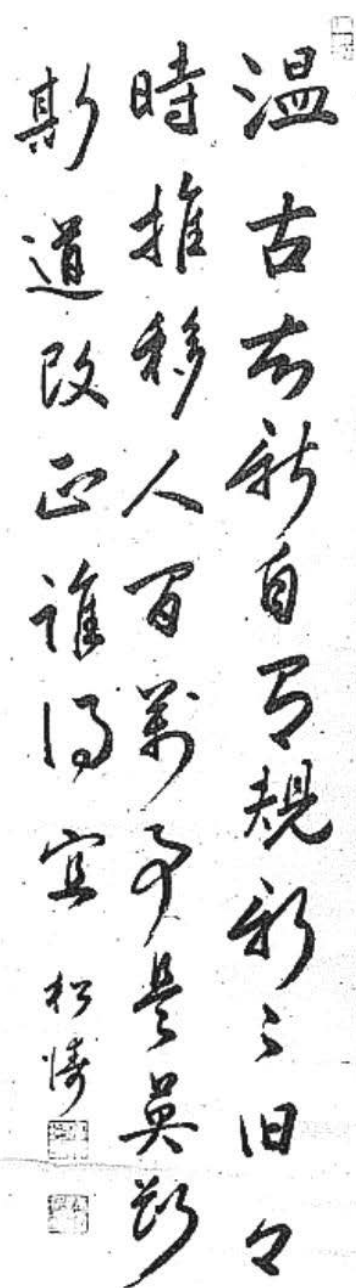 温古知新自有規新々旧々
時推移人間萬事是英断
斯道改正誰得宜 松濤